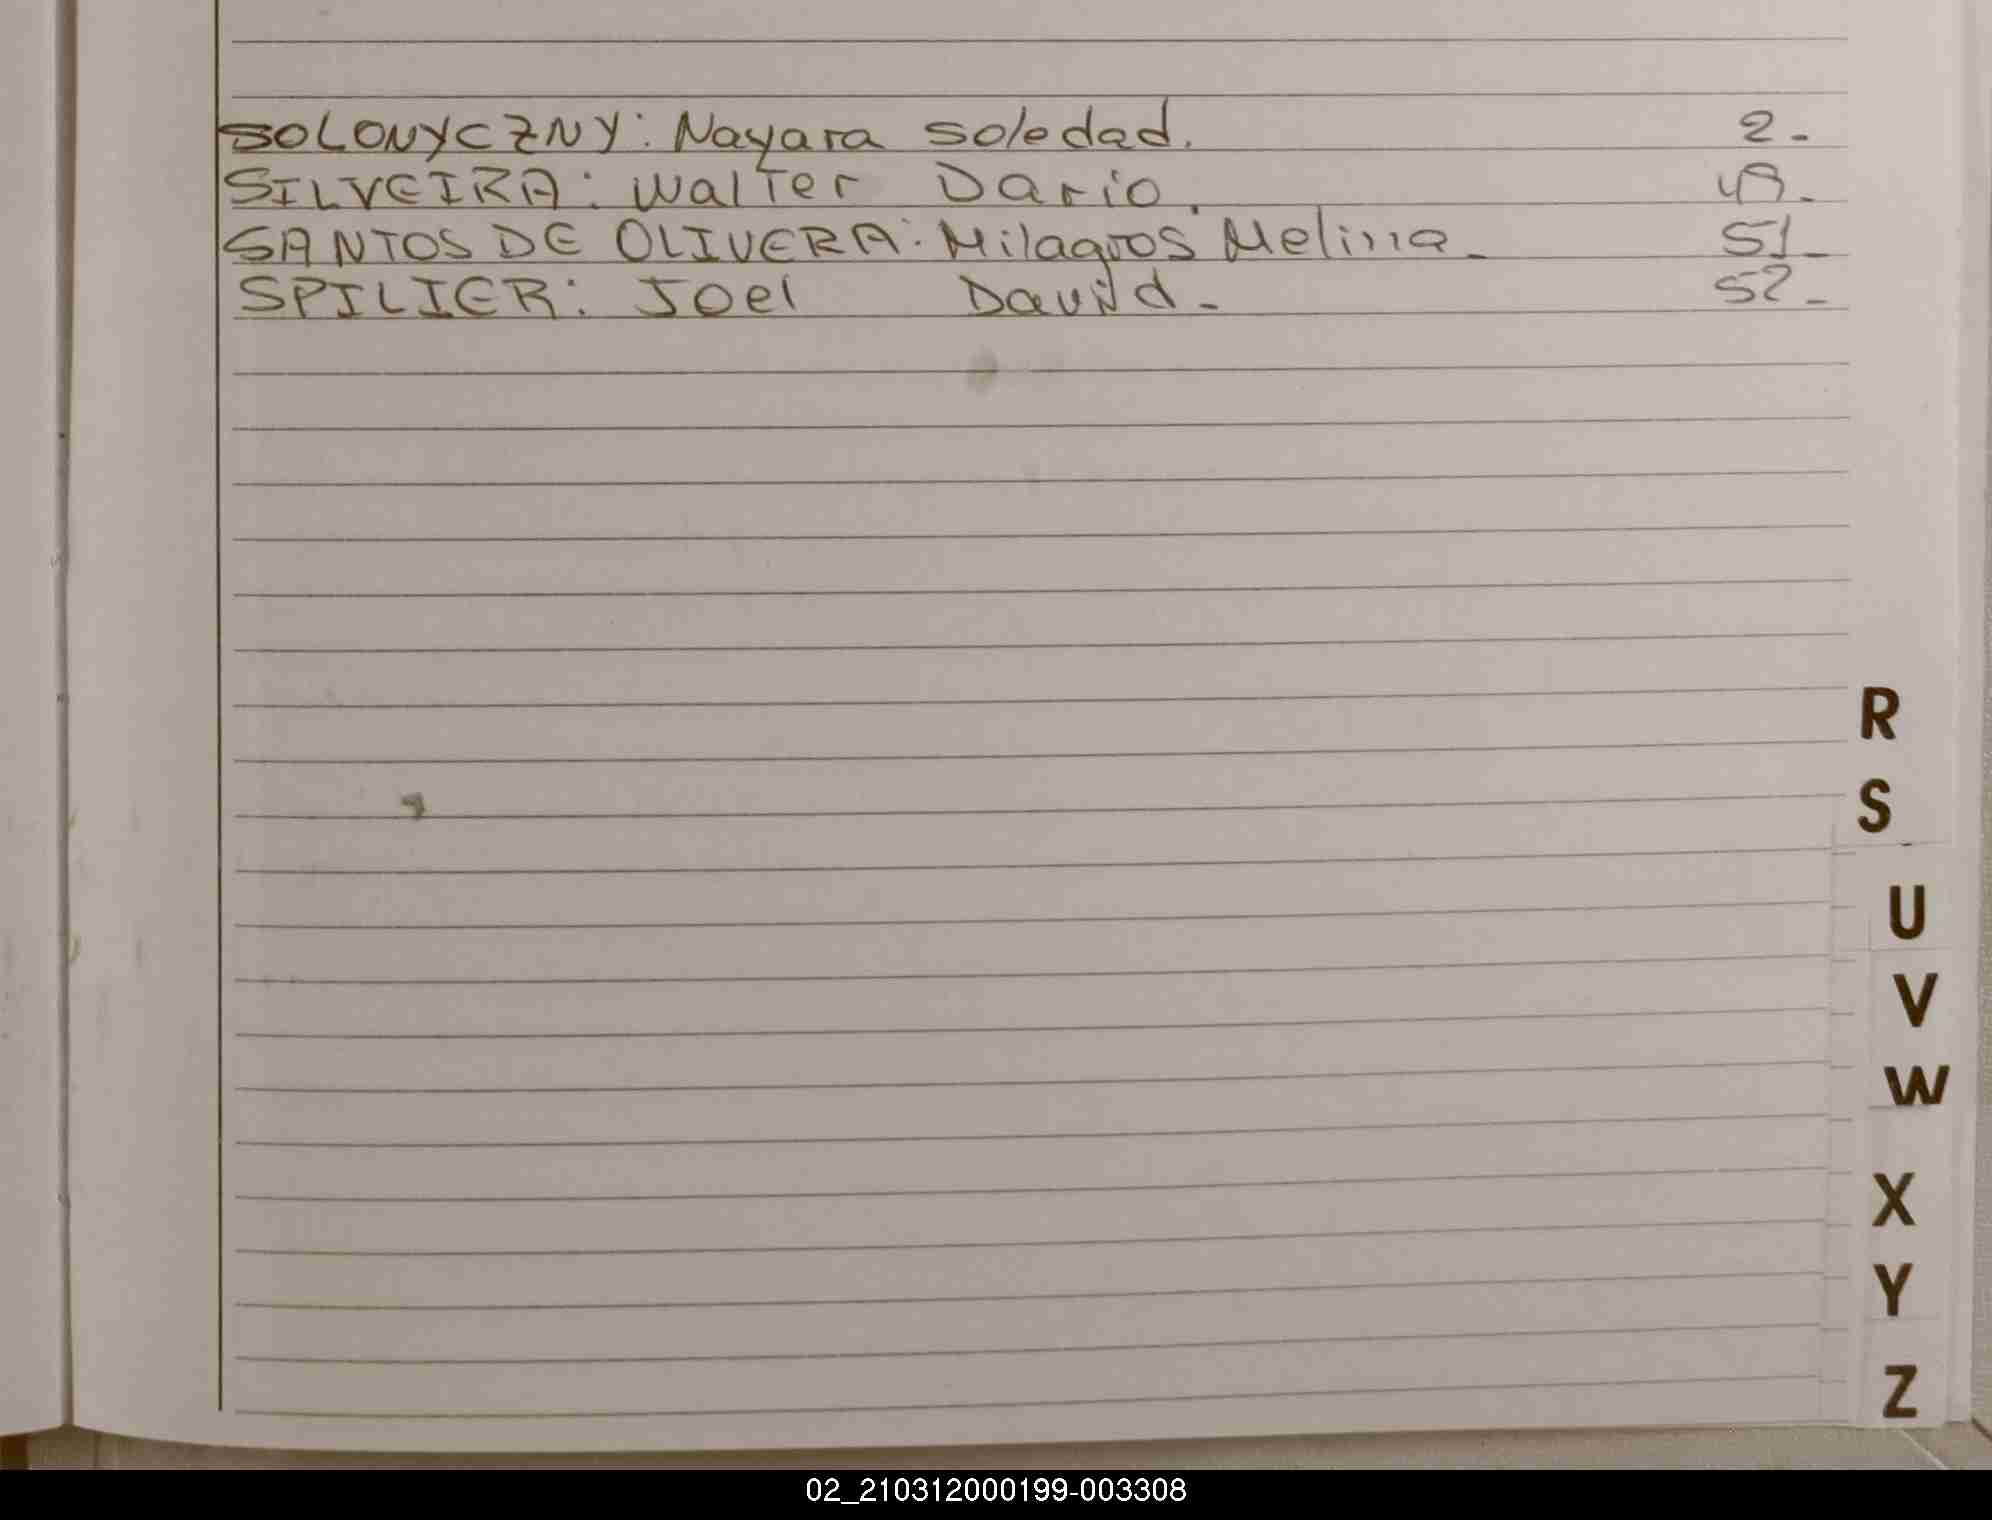 SOLONYCZNY: Nayara Soledad. 2.-
SILVEIRA: Walter Dario. 49.-
SANTOS DE OLIVERA: Milagros Melina.- 51.-
SPILIER: Joel David.- 52.-
R
S
U
V
W
X
Y
Z
02_210312000199-003308